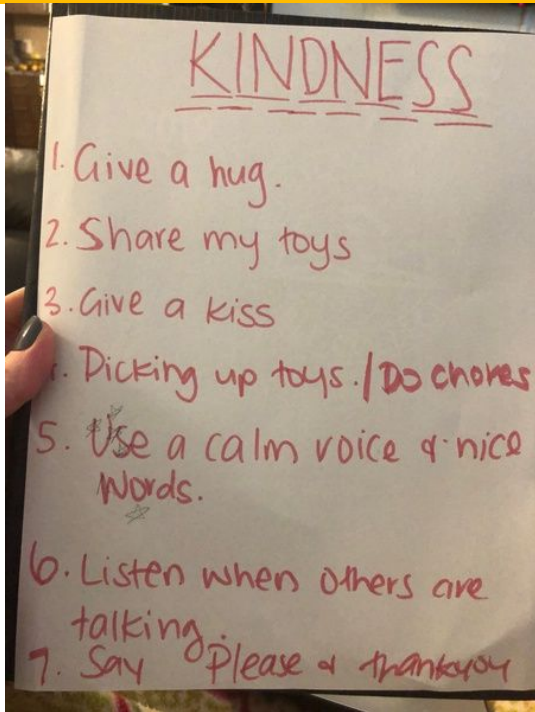 KINDNESS
1. Give a hug.
2. Share my toys
3. Give a kiss
. Dicking up toys. / Do chores
5. Use a calm voice & nice
Words.
6. Listen when others are
talking.
7. Say Please & thankyou